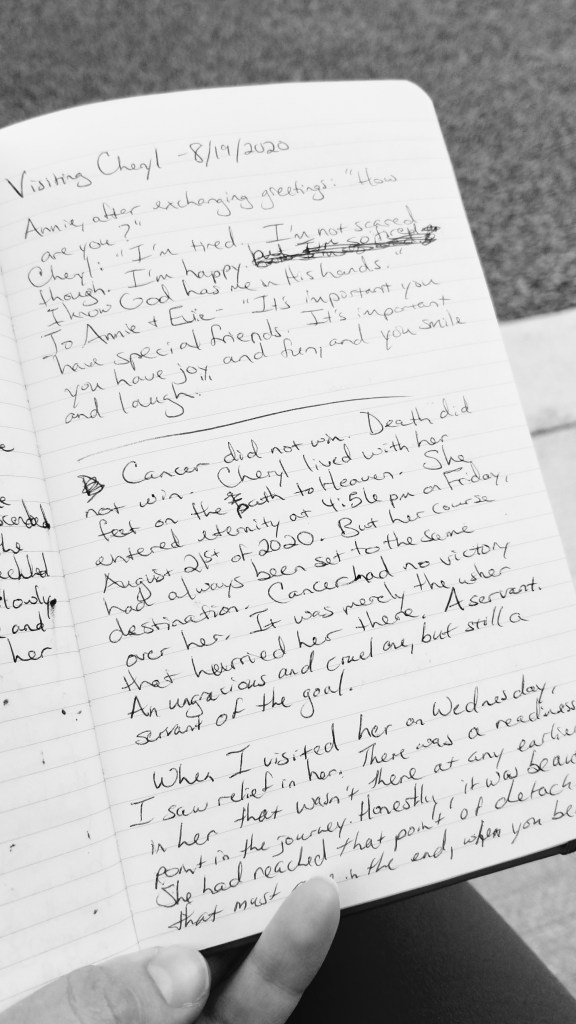 Visiting Cheryl - 8/19/2020
Annie, after exchanging greetings: "How
are you?"
Cheryl: "I'm tired. I'm not scared
though. I'm happy.
I know God has me in His hands."
To Annie + Evie - "It's important you
have special friends. It's important
you have joy and fun, and you smile
and laugh."
Cancer did not win. Death did
not win. Cheryl lived with her
feet on the path to Heaven. She
entered eternity at 4:56 pm on Friday,
August 21st of 2020. But her course
had always been set to the same
destination. Cancer had no victory
over her. It was merely the usher
that hurried her there. A servant.
An ungracious and cruel one, but still a
servant of the goal.
When I visited her on Wednesday,
I saw relief in her. There was a readiness
in her that wasn't there at any earlie
point in the journey. Honestly, it was beau
She had reached that point of detach
that must in the end, when you be
e
scended
the
lowly
e and
her